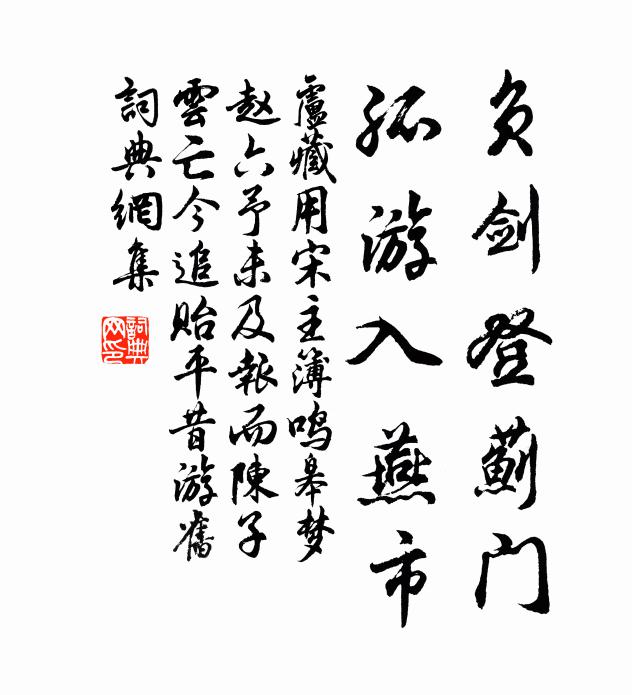 负剑登蓟门
孤游入燕市
盧藏用宋主簿鸣皋梦
赵六予未及報而陳子
雲亡今追貽平昔游舊
詞典網集
詞典网印